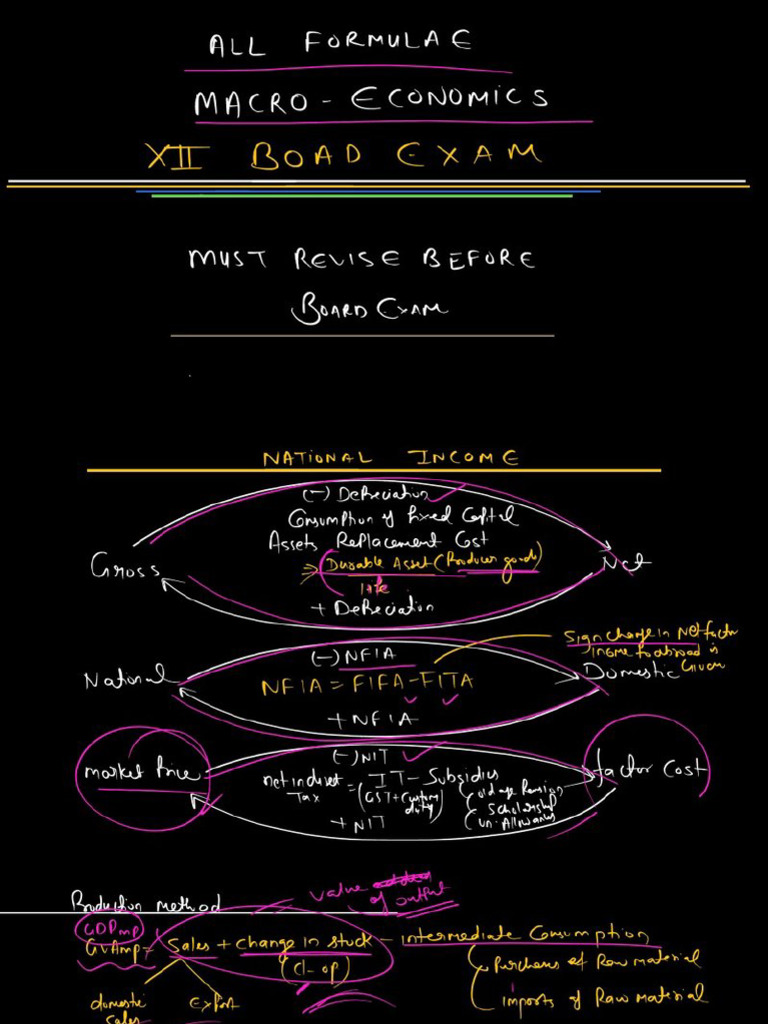 ALL FORMULAE
MACRO-ECONOMICS
XII BOAD EXAM
MUST REVISE BEFORE
BOARD EXAM
NATIONAL INCOME
(-) Depreciation
Consumption of fixed Capital
Assets Replacement Cost
Gross
Durable Asset (Producer goods)
Net
life
+ Depreciation
Sign change in Net factor
income to abroad is
Given
(-) NFIA
National
NFIA = FIFA-FITA
Domestic
+ NFIA
(-) NIT
market Price
net indirect Tax = IT - Subsidies
factor Cost
(GST + Custom duty)
old age Pension
Scholarship
un. Allowances
+ NIT
value of output
Production method
GDPmp
GVAmp = Sales + change in stock - intermediate Consumption
(cl - op)
Purchases of Raw material
domestic sales
Export
imports of Raw material